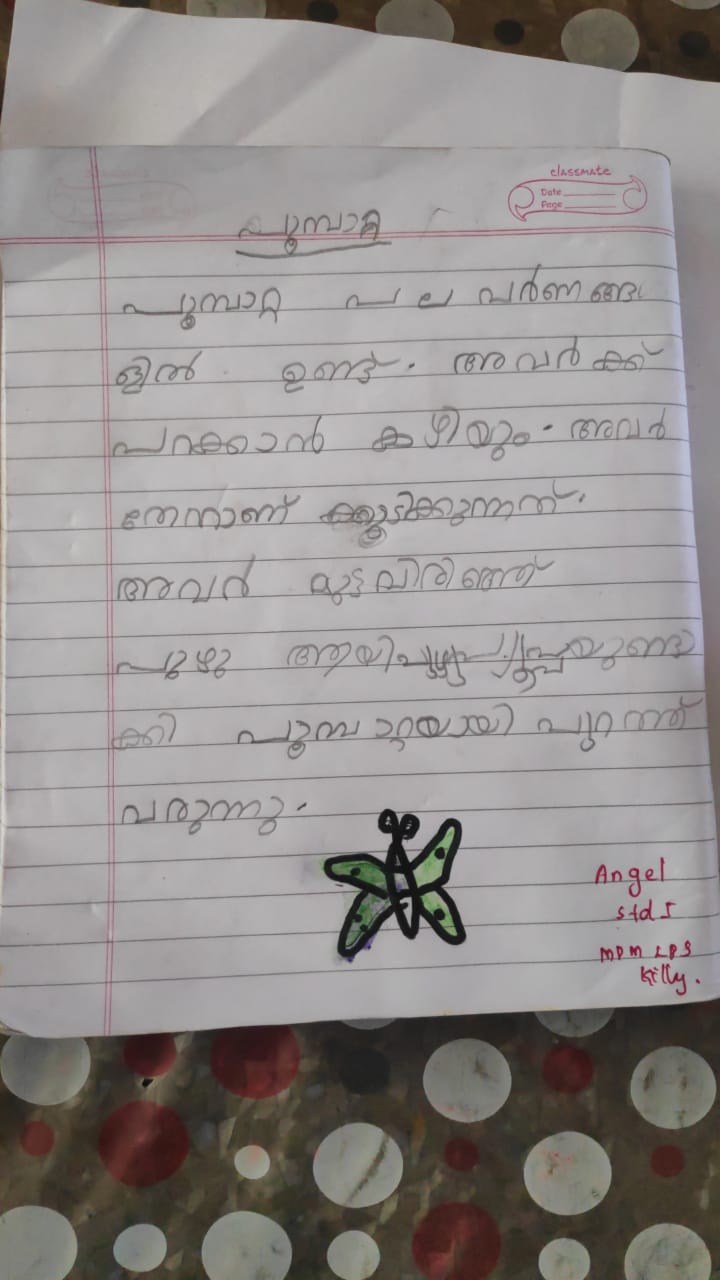 classmate
Date
Page
പൂമ്പാറ്റ
പൂമ്പാറ്റ പല വർണങ്ങ
ളിൽ ഉണ്ട്. അവർക്ക്
പറക്കാൻ കഴിയും. അവർ
തേനാണ് കുടിക്കുന്നത്.
അവർ മുട്ടവിരിഞ്ഞ്
പുഴു ആയി യുണ്ടാ
ക്കി പൂമ്പാറ്റയായി പുറത്ത്
വരുന്നു.
Angel
std I
MPM LPS
Killy.